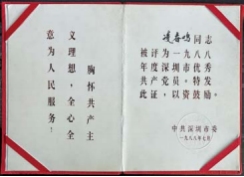 胸怀共产主
义理想，全心全
意为人民服务！
同志
被评为一九八八
年度深圳市优秀
共产党员。特发
此证，以资鼓励。
中共深圳市委
一九八八年七月